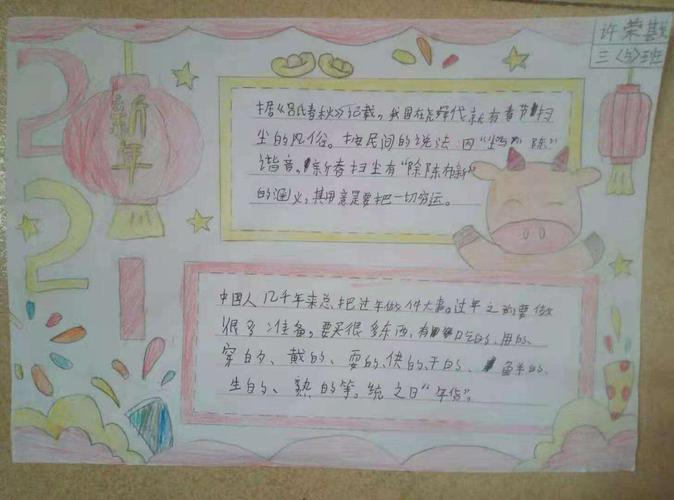 2021
新年
许荣
三(5)班
据《吕氏春秋》记载，我国在尧舜代就有春节扫
尘的风俗。按民间的说法：因“尘”与“陈”
谐音，新春扫尘有“除陈布新”
的涵义，其用意是要把一切穷运。
中国人几千年来总把过年做件大事。过年之前要做
很多准备，要买很多东西，有吃的、用的、
穿的、戴的、耍的、供的、干的、鱼羊的、
生的、熟的等，统之日“年货”。